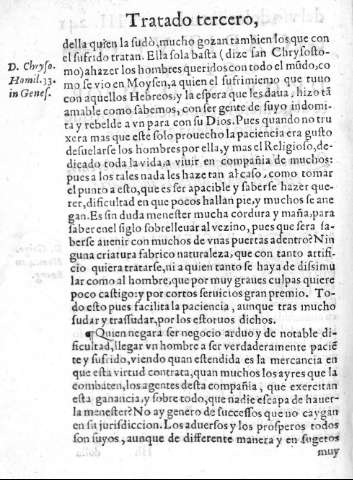 Tratado tercero,
D. Chryso.
Homil. 33.
in Genes.
della quien la sudò, mucho gozan tambien los que con
el sufrido tratan. Ella sola basta (dize san Chrysosto-
mo) a hazer los hombres queridos con todo el mũdo, co
mo se vio en Moysen, a quien el sufrimiento que tuuo
con aquellos Hebreos, y la espera que les daua, hizo tã
amable como sabemos, con ser gente de suyo indomi-
ta y rebelde a vn para con su Dios. Pues quando no tru
xera mas que este solo prouecho la paciencia era gusto
desuelarse los hombres por ella, y mas el Religioso, de-
dicado toda la vida, a viuir en compañia de muchos:
pues a los tales nada les haze tan al caso, como tomar
el punto a esto, que es ser apacible y saberse hazer que-
rer, dificultad en que pocos hallan pie, y muchos se ane
gan. Es sin duda menester mucha cordura y maña, para
saber en el siglo sobrelleuar al vezino, pues que sera sa-
berse auenir con muchos de vnas puertas adentro? Nin
guna criatura fabrico naturaleza, que con tanto artifi-
cio quiera tratarse, ni a quien tanto se haya de dissimu
lar como al hombre, que por muy graues culpas quiere
poco castigo: y por cortos seruicios gran premio. To-
do esto pues facilita la paciencia, aunque tras mucho
sudar y trassudar, por los estoruos dichos.
¶ Quien negara ser negocio arduo y de notable di-
ficultad, llegar vn hombre a ser verdaderamente paciẽ
te y sufrido, viendo quan estendida es la mercancia en
que esta virtud contrata, quan muchos los ayres que la
combaten, los agentes desta compañia, que exercitan
esta ganancia, y sobre todo, que nadie escapa de hauer-
la menester? No ay genero de successos que no caygan
en su jurisdiccion. Los aduersos y los prosperos todos
son suyos, aunque de differente manera y en sugetos
muy